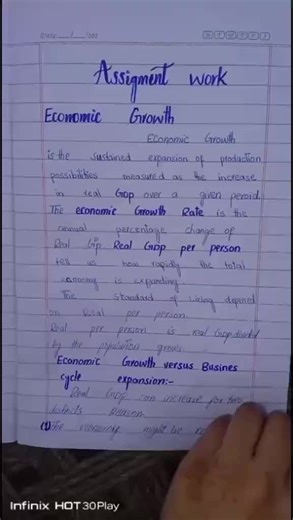 Assigment work
Economic Growth
Economic Growth
is the sustained expansion of production
possibilities measured as the increase
in real GDP over a given period.
The economic Growth Rate is the
annual percentage change of
Real GDP Real GDP per person
tell us how rapidly the total
economy is expanding
The standard of living depend
on Real per person.
Real per person is real GDP divided
by the population
Economic Growth versus Busines
cycle expansion:-
Real GDP can increase for two
(1) The might be
Infinix HOT 30Play